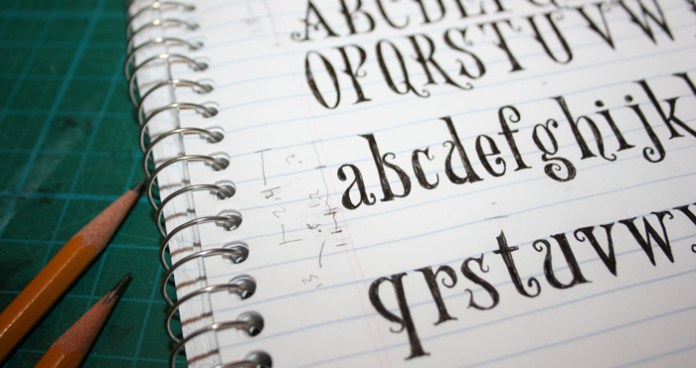 ABCDEFG
OPQRSTUVW
abcdefghijk
qrstuvwx